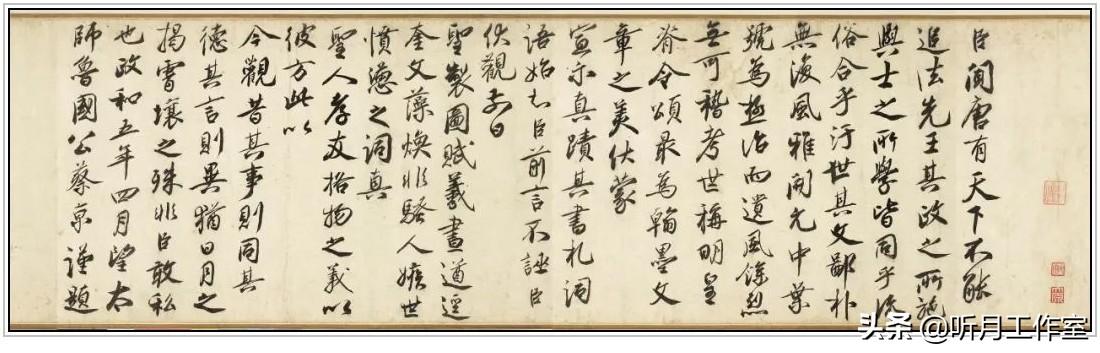 臣聞唐有天下不能
追法先王其政之所施
與士之所學皆同乎流
俗合乎汙世其文鄙朴
無復風雅開元中葉
號為極治而遺風餘烈
無可稽考世稱明皇
脊令頌最為翰墨文
章之美伏蒙
宣示真蹟其書札詞
語始知臣前言不誣臣
伏觀前日
聖製圖賦羲畫道逕
奎文藻煥非騷人嫉世
憤懣之詞真
聖人孝友格物之義以
彼方此以
今觀昔其事則同其
德其言則異猶日月之
揭霄壤之殊非臣敢私
也政和五年四月望太
師魯國公蔡京謹題
头条@听月工作室